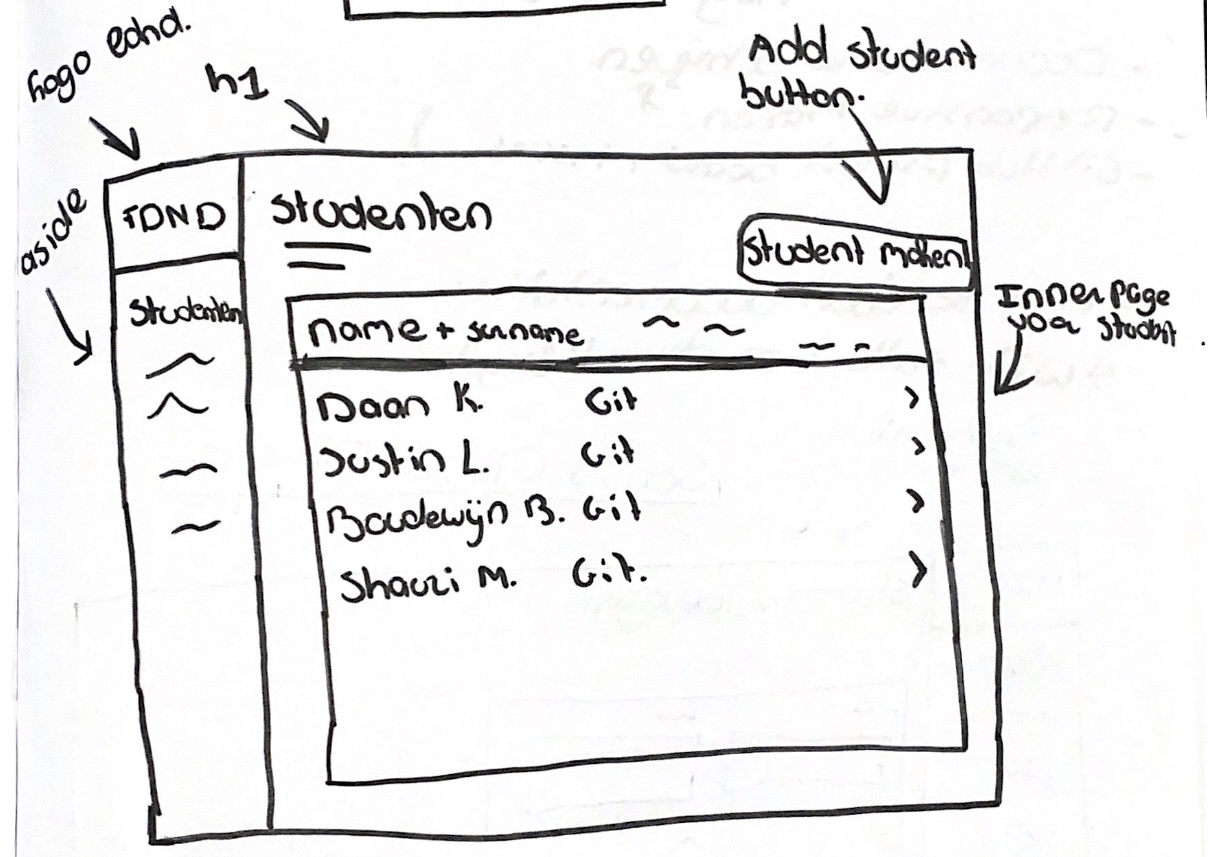 Logo edhd.
h1
Add student
button.
aside
TDND
Studenten
Student maken
Studenten
Inner page
voor student
name + surname
Daan K. Git >
Justin L. Git >
Boudewijn B. Git >
Shauzi M. Git. >